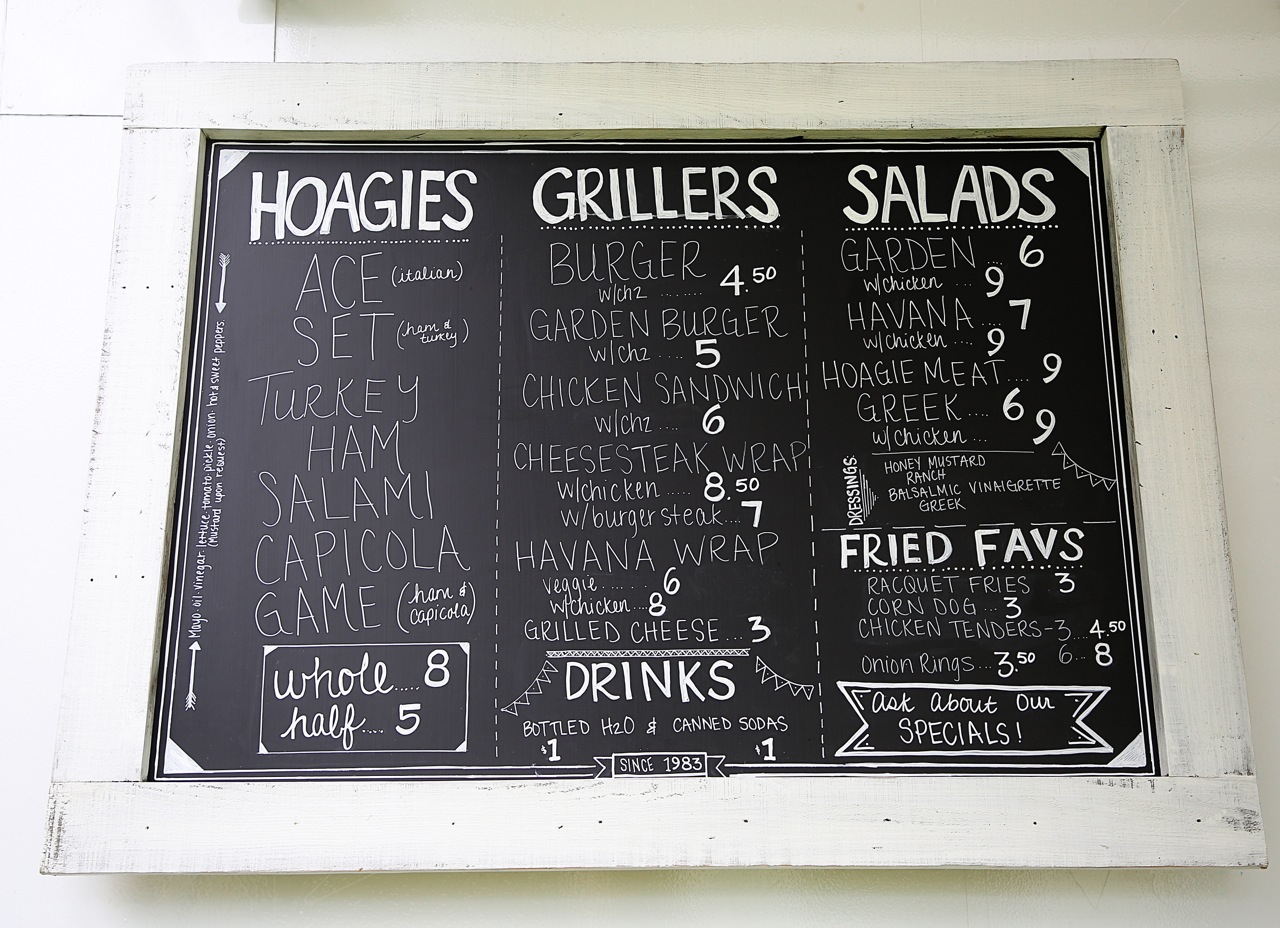 HOAGIES
ACE (italian)
SET (ham & turkey)
TURKEY
HAM
SALAMI
CAPICOLA
GAME (ham & capicola)
whole.....8
half....5
Mayo. oil. vinegar. lettuce. tomato. pickle. onion. hot & sweet peppers
(Mustard upon request)
GRILLERS
BURGER
w/chz ........ 4.50
GARDEN BURGER
w/chz .... 5
CHICKEN SANDWICH
w/chz .... 6
CHEESESTEAK WRAP
w/chicken ..... 8.50
w/burger steak....7
HAVANA WRAP
veggie....... 6
w/chicken...8
GRILLED CHEESE...3
DRINKS
BOTTLED H2O & CANNED SODAS
$1 $1
SINCE 1983
SALADS
GARDEN ... 6
w/chicken ... 9
HAVANA ... 7
w/chicken ... 9
HOAGIE MEAT.... 9
GREEK.... 6
w/chicken ... 9
DRESSINGS:
HONEY MUSTARD
RANCH
BALSALMIC VINAIGRETTE
GREEK
FRIED FAVS
RACQUET FRIES 3
CORN DOG ... 3
CHICKEN TENDERS-3...4.50
6...8
Onion Rings...3.50
Ask About Our
SPECIALS!